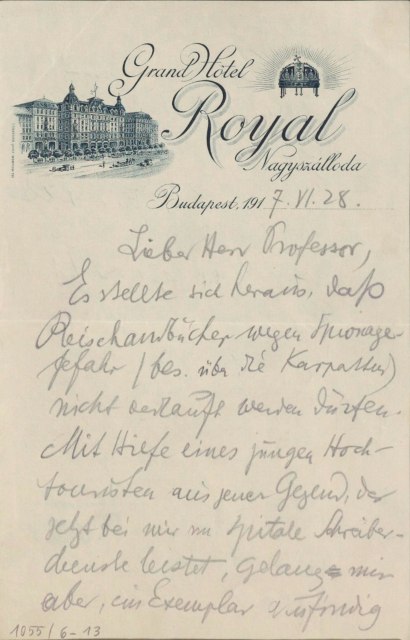 Grand Hôtel
Royal
Nagyszálloda
Budapest, 1917. VI. 28.
Lieber Herr Professor,
Es stellte sich heraus, daß
Reisehandbücher wegen Spionage-
gefahr (bes. über die Karpathen)
nicht verkauft werden dürfen.
Mit Hilfe eines jungen Hoch-
touristen aus jener Gegend, der
jetzt bei mir im Spitale Schreiber-
dienste leistet, gelang mir
aber, ein Exemplar ausfindig
1055/6-13